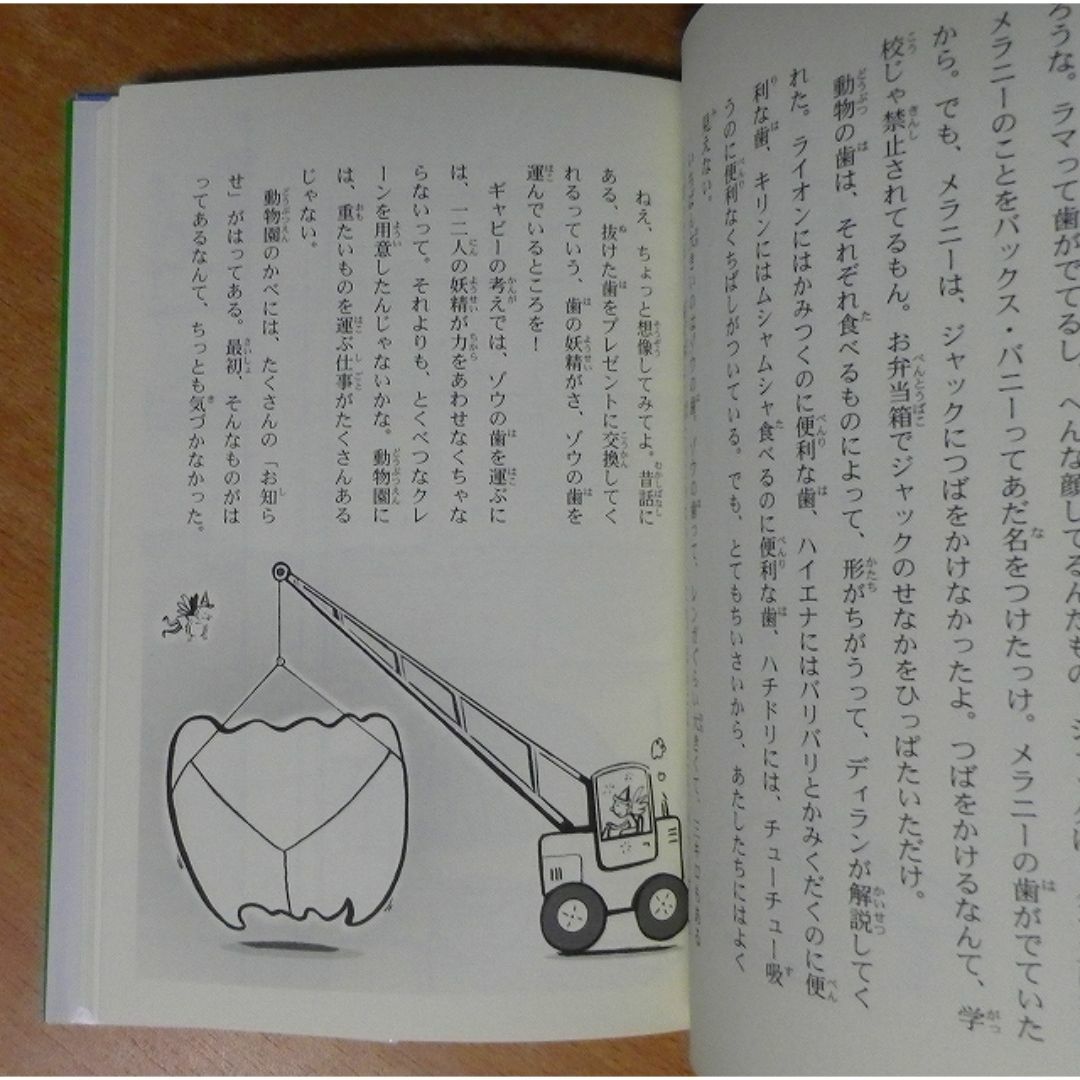 うな。ラマって歯がでてるし、へんな顔してるんだもの。
メラニーのことをバックス・バニーってあだ名をつけたっけ。メラニーの歯がでていた
から。でも、メラニーは、ジャックにつばをかけなかったよ。つばをかけるなんて、学
校じゃ禁止されてるもん。お弁当箱でジャックのせなかをひっぱたいただけ。
動物の歯は、それぞれ食べるものによって、形がちがうって、ディランが解説してく
れた。ライオンにはかみつくのに便利な歯、ハイエナにはバリバリとかみくだくのに便
利な歯、キリンにはムシャムシャ食べるのに便利な歯、ハチドリには、チューチュー吸
うのに便利なくちばしがついている。でも、とてもちいさいから、あたしたちにはよく
見えない。
ねえ、ちょっと想像してみてよ。昔話に
ある、抜けた歯をプレゼントに交換してく
れるっていう、歯の妖精がさ、ゾウの歯を
運んでいるところを！
ギャビーの考えでは、ゾウの歯を運ぶに
は、一二人の妖精が力をあわせなくちゃな
らないって。それよりも、とくべつなクレ
ーンを用意したんじゃないかな。動物園に
は、重たいものを運ぶ仕事がたくさんある
じゃない。
動物園のかべには、たくさんの「お知ら
せ」がはってある。最初、そんなものがは
ってあるなんて、ちっとも気づかなかった。